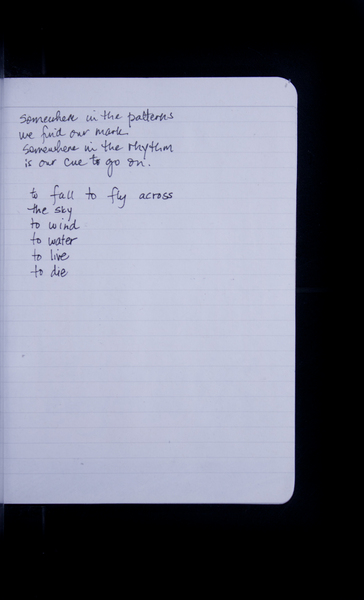 somewhere in the patterns
we find our mark.
somewhere in the rhythm
is our cue to go on.
to fall to fly across
the sky
to wind
to water
to live
to die